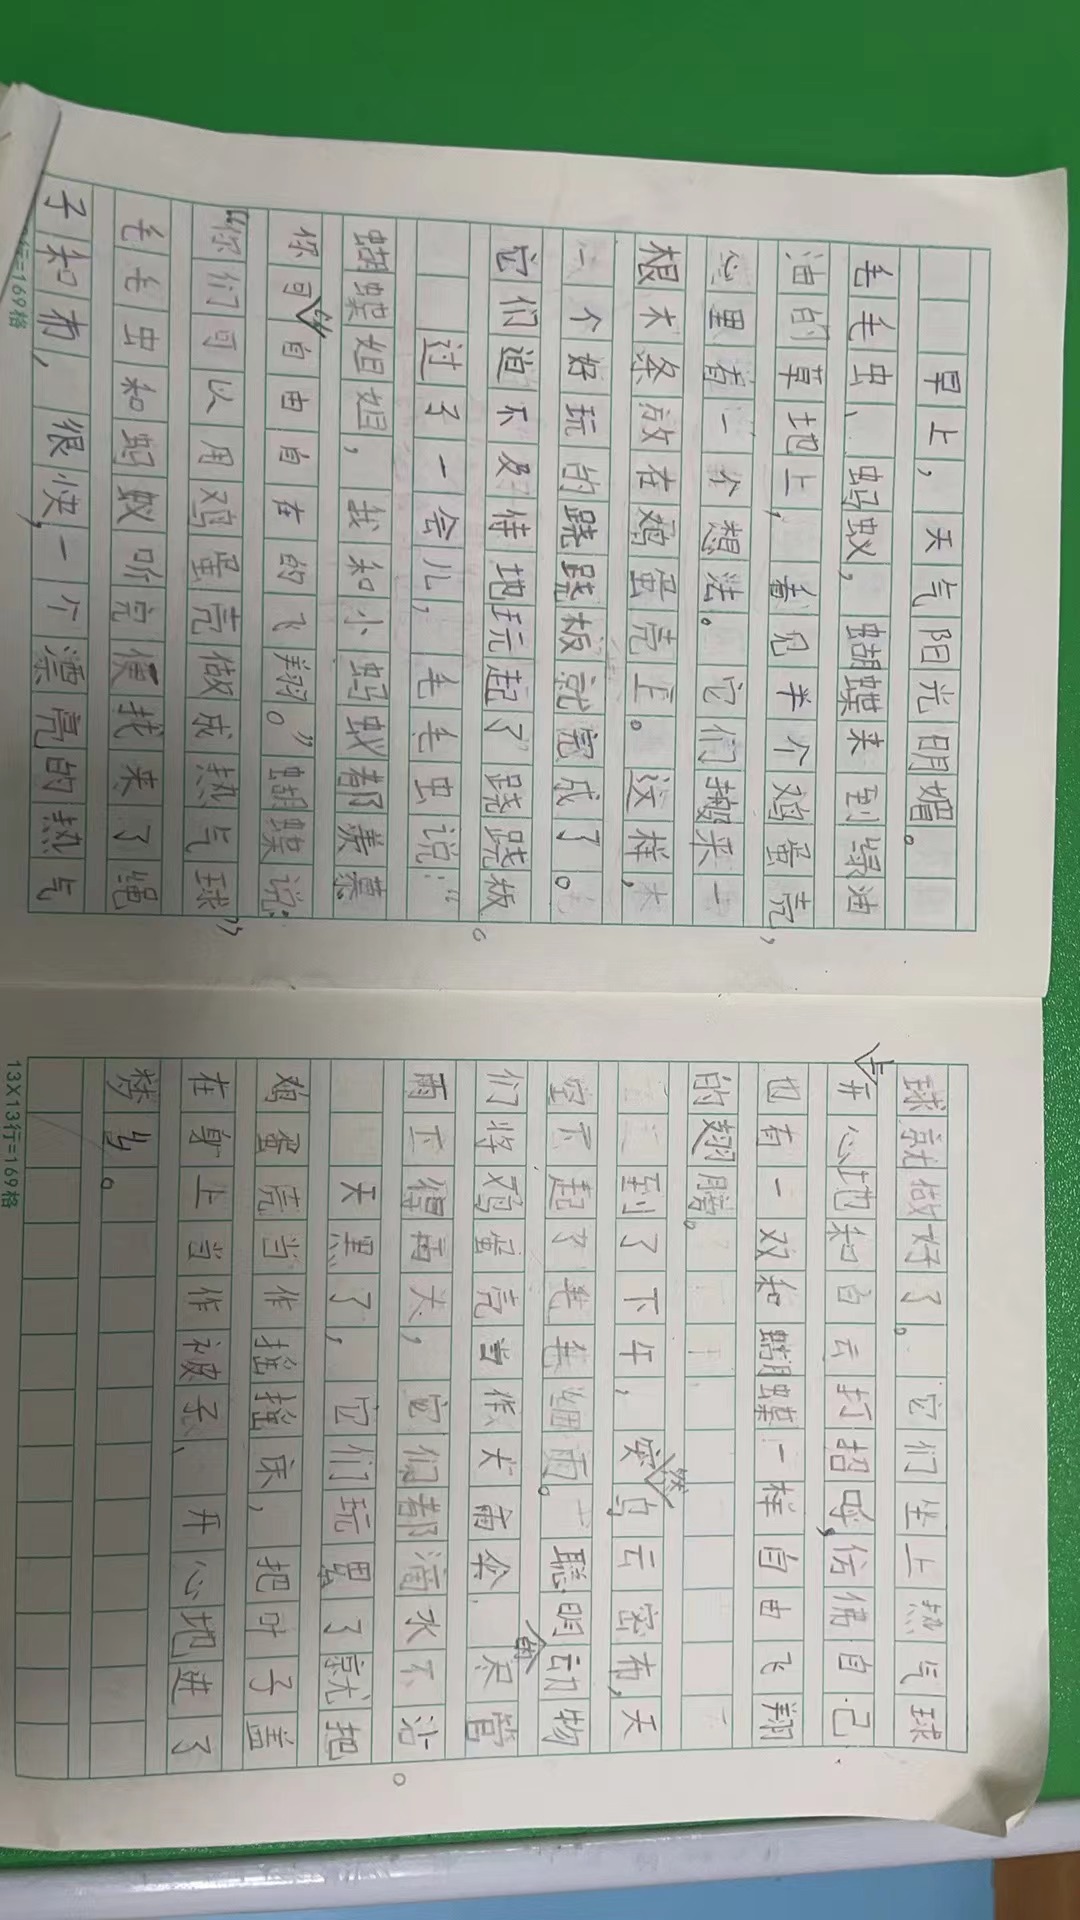 早上，天气阳光明媚。
毛毛虫、蚂蚁，蝴蝶来到绿油
油的草地上，看见半个鸡蛋壳，
心里有一个想法。它们搬来一
根木条放在鸡蛋壳上。这样，
一个好玩的跷跷板就完成了。
它们迫不及待地玩起了跷跷板。
过了一会儿，毛毛虫说：“
蝴蝶姐姐，我和小蚂蚁都羡慕
你可以自由自在的飞翔。”蝴蝶说：
“你们可以用鸡蛋壳做成热气球”
毛毛虫和蚂蚁听完便找来了绳
子和布，很快，一个漂亮的热气
13X13行=169格
球就做好了。它们坐上热气球
上开心地和白云打招呼，仿佛自己
也有一双和蝴蝶一样自由飞翔
的翅膀。
到了下午，突然乌云密布，天
空下起了毛毛细雨。聪明的动物
们将鸡蛋壳当作大雨伞.尽管
雨下得雨大，它们都滴水不沾。
天黑了，它们玩累了就把
鸡蛋壳当作摇摇床，把叶子盖
在身上当作被子、开心地进了
梦乡。
13X13行=169格